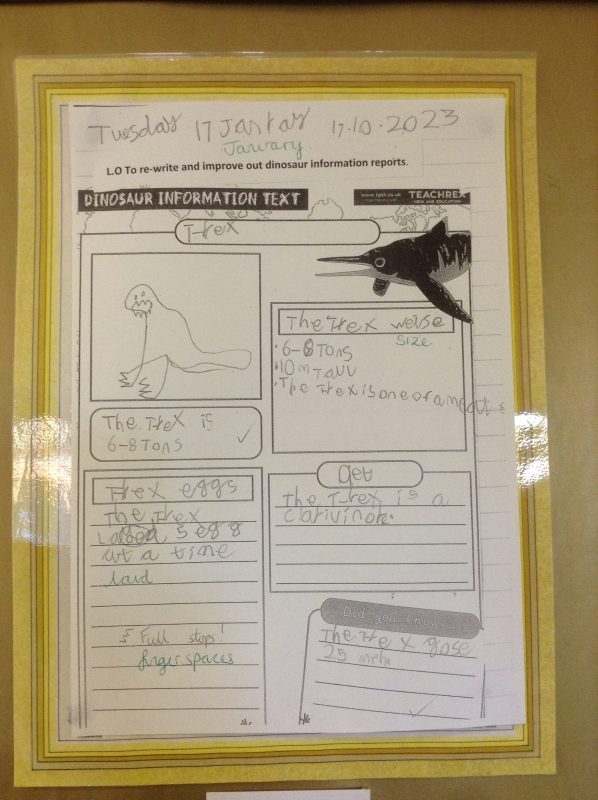 Tuesday 17 Jantay 17.10.2023
January
L.O To re-write and improve out dinosaur information reports.
DINOSAUR INFORMATION TEXT
www.tpet.co.uk
TEACHREX
NEW AGE EDUCATION
T-rex
The Trex weise
size
6-8 Tons
10m Tall
The Trex is one of a
The Trex is
6-8 Tons
Trex eggs
The Trex
5 egg
at a time
laid
Full stops!
finger spaces
Det
The T-rex is a
carivinore
Did you know...
The Trex gose
25 mph